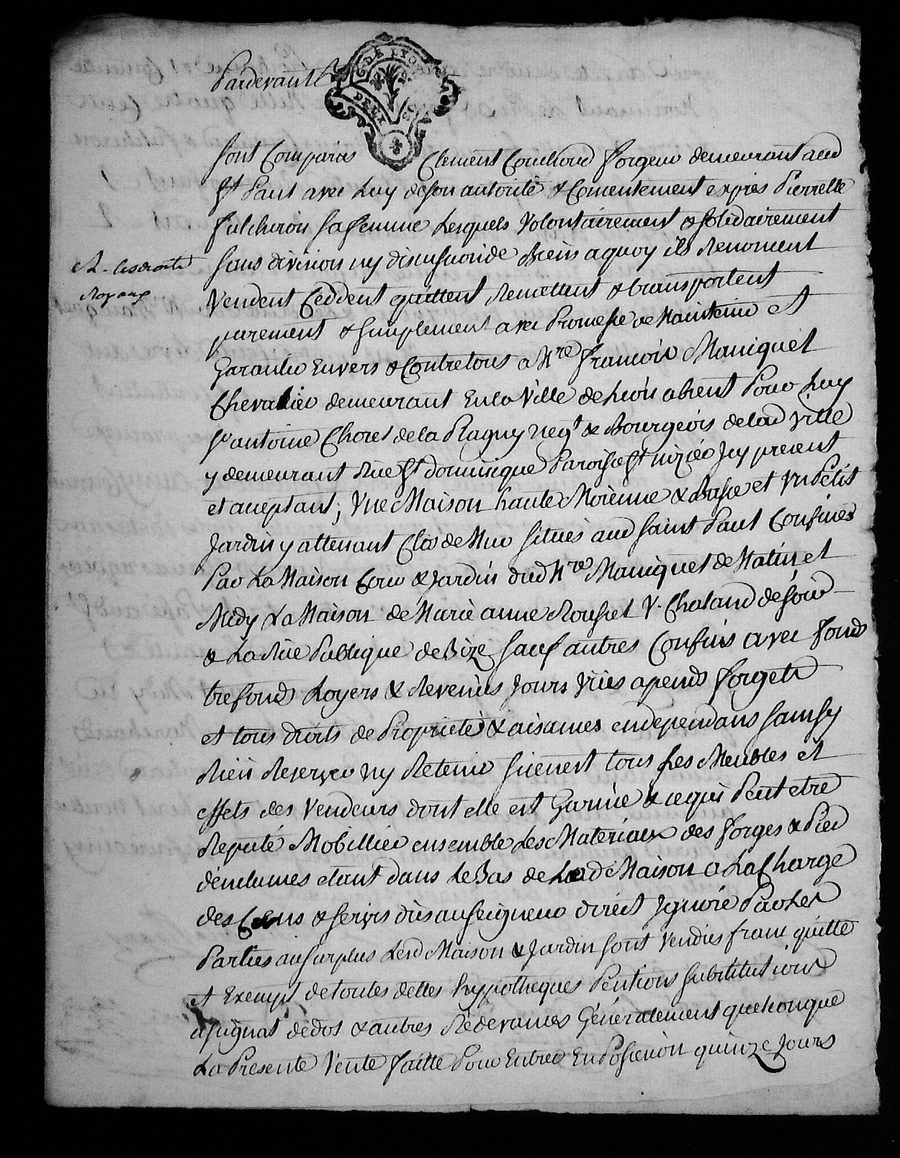 Pardevant
G. DE LYON
DEUX
sont Comparus Clement Couchoud forgeur demeurant aud
St Paul avec Luy de son autorité & Consentement exprès Pierrette
fulchiron sa femme Lesquels Volontairement & solidairement
sans division ny discussion de Biens a quoy ils Renoncent
Vendent Ceddent quittent Remettent & transportent
purement & simplement avec Promesse de Maintenir Et
Garantir Envers & Contre tous a Mre françois Maniquet
Chevalier demeurant En la Ville de Lion absent Pour Luy
Sr antoine Choret de la Plagny negt & Bourgeois de lad Ville
y demeurant Rue St dominique Paroisse St nizéo Icy present
et acceptant, Une Maison haute Moienne & Basse et Un Petit
Jardin y attenant Clos de Mur Situés aud Saint Paul Confinés
Par La Maison Cour & Jardin dud Mre Maniquet de Matin et
Midy La Maison de Marie anne Rousset Ve Chaland de soir
& La Rue Publique de Bize sauf autres Confins avec fonds
tresfonds Loyers & Revenus Jours Vües apends forgets
et tous droits de Proprieté & aisances en dependans sans sy
Rien Reserver ny Retenir si cenest tous Les Meubles et
effets des Vendeurs dont elle est Garnie & cequi Peut etre
Reputé Mobillier ensemble Les Materiaux des forges & Pied
denclumes etant dans Le Bas de Lad Maison a La Charge
des Cens & servis dus au seigneur direct Ignoré Par Les
Parties au surplus Lesd Maison & Jardin sont Vendus franc quitte
et Exempt de toutes dettes hypotheques Pentions substitutions
assignat de dot & autres Rederances Généralement quelconque
La Presente Vente faitte Pour Entrer En Possession quinze Jours
Et. Les droits
Royaux